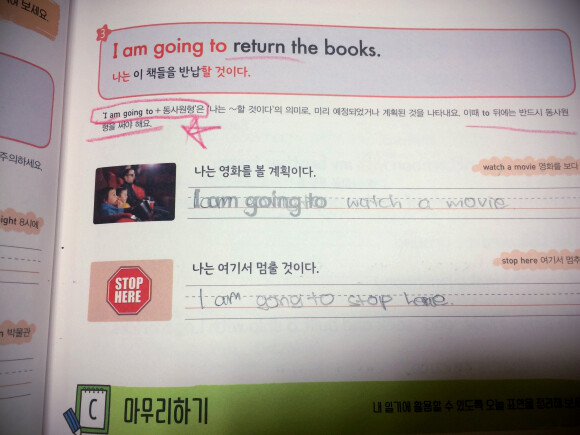 여 보세요.
3
I am going to return the books.
나는 이 책들을 반납할 것이다.
'I am going to + 동사원형'은 '나는 ~할 것이다'의 의미로, 미리 예정되었거나 계획된 것을 나타내요. 이때 to 뒤에는 반드시 동사원
형을 써야 해요.
주의하세요.
나는 영화를 볼 계획이다.
watch a movie 영화를 보다
I am going to watch a movie
ight 8시에
나는 여기서 멈출 것이다.
stop here 여기서 멈추
STOP
HERE
I am going to stop here.
박물관
C 마무리하기
내 일기에 활용할 수 있도록 오늘 표현을 정리해